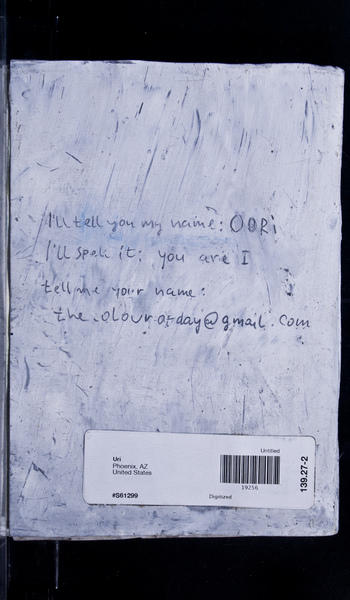 I'll tell you my name: OORi
I'll spell it: you are I
tell me your name:
thecolourofday@gmail.com
Untitled
Uri
Phoenix, AZ
United States
19256
#S61299
Digitized
139.27-2